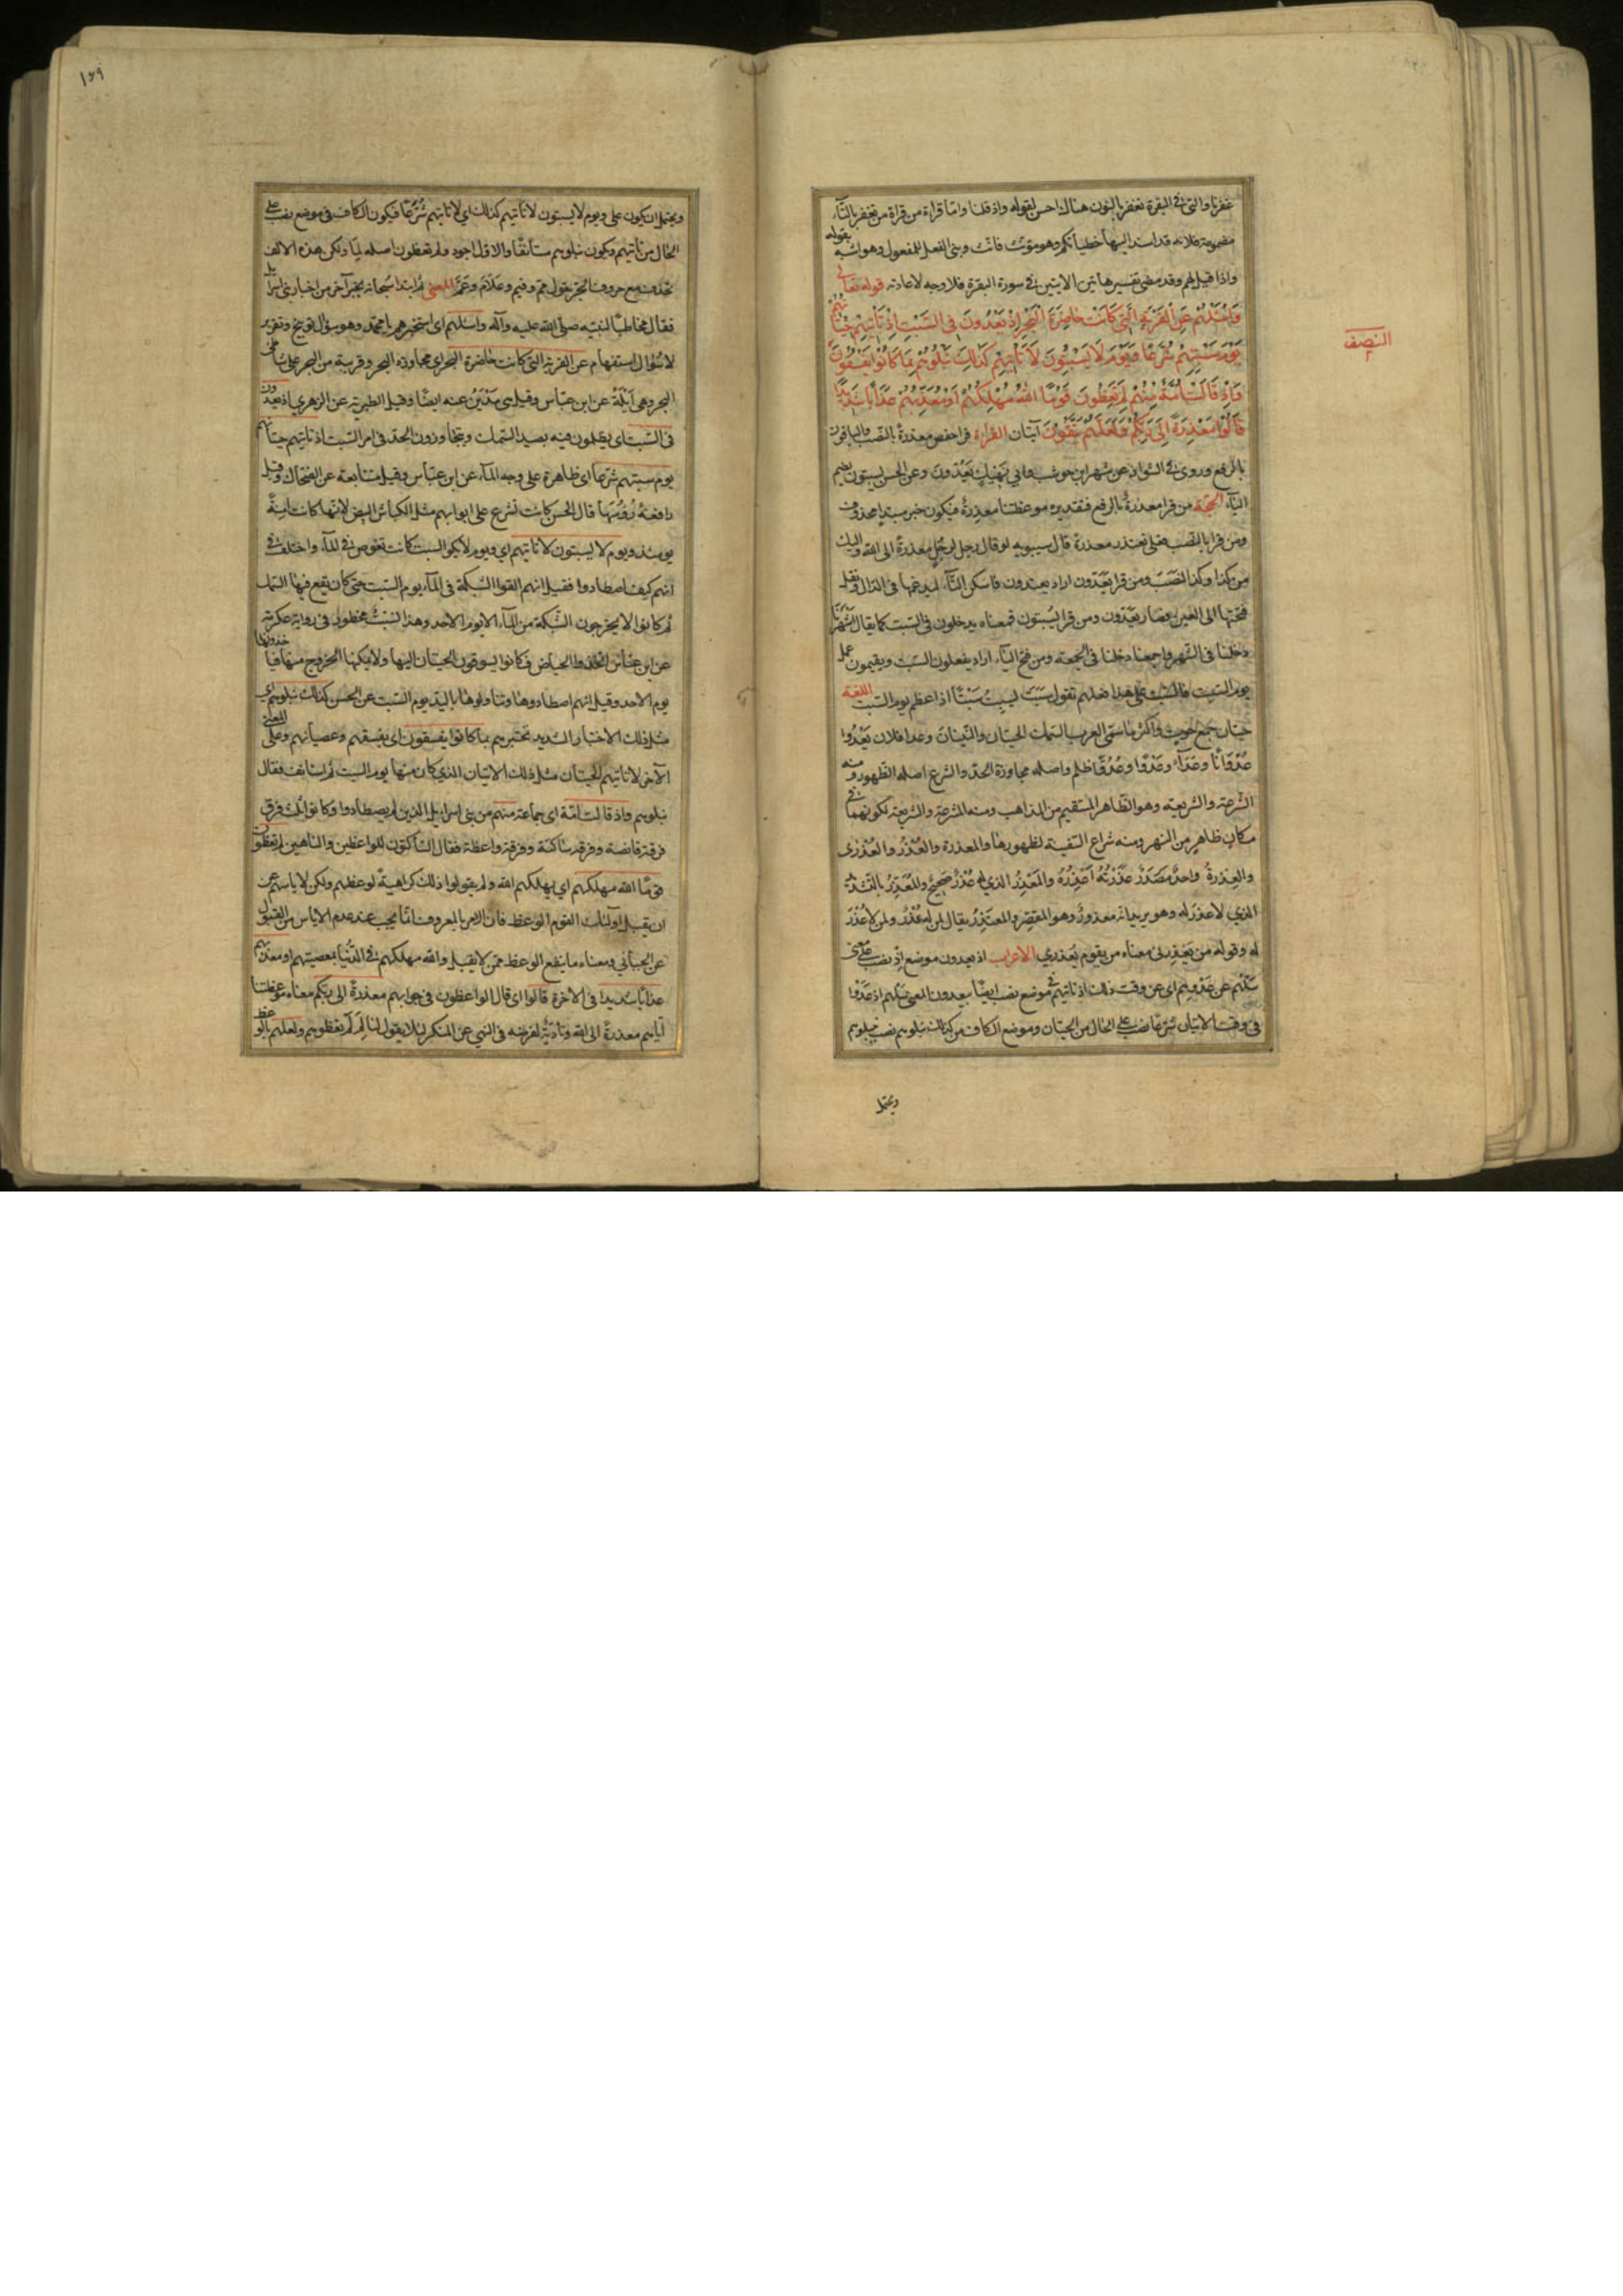 غفرنا والتي في البقرة نغفر بالنون هناك احسن لقوله واذ قلنا واما قراءة من قراة من تغفر بالتاء
مضمومة فلانه قد اسند اليها خطيأتكم وهو مؤنث فانث وبنى الفعل للمفعول وهو اشبه بقوله
واذا قيل لهم وقد مضى تفسير هاتين الايتين في سورة البقرة فلا وجه لاعادته قوله تعالى
وَاسْئَلْهُمْ عَنِ الْقَرْيَةِ الَّتِي كَانَتْ حَاضِرَةَ الْبَحْرِ اِذْ يَعْدُونَ فِي السَّبْتِ اِذْ تَأْتِيهِمْ حِيتَانُهُمْ
يَوْمَ سَبْتِهِمْ شُرَّعًا وَيَوْمَ لَا يَسْبِتُونَ لَا تَأْتِيهِمْ كَذَلِكَ نَبْلُوهُمْ بِمَا كَانُوا يَفْسُقُونَ
وَاِذْ قَالَتْ اُمَّةٌ مِنْهُمْ لِمَ تَعِظُونَ قَوْمًا اللهُ مُهْلِكُهُمْ اَوْ مُعَذِّبُهُمْ عَذَابًا شَدِيدًا
قَالُوا مَعْذِرَةً اِلَى رَبِّكُمْ وَلَعَلَّهُمْ يَتَّقُونَ آيتان القراءة قرا حفص معذرة بالنصب والباقون
بالرفع وروى في الشواذ عن شهر ابن حوشب وابي نهيك يَعَدّونَ وعن الحسن يسبتون بضم
الياء الحجة من قرا معذرةٌ بالرفع فتقديره موعظتنا معذرةٌ فيكون خبر مبتدا محذوف
ومن قرا بالنصب فعلى نعتذر معذرة قال سيبويه لو قال رجل لرجل معذرةً الى الله واليك
من كذا وكذا لنصب ومن قرا يعدّون اراد يعتدون فاسكن التاء ليدغمها في الدال ونقل
فتحتها الى العين فصار يعَدّون ومن قرا يُسبتون فمعناه يدخلون في السبت كما يقال اشهرنا
دخلنا في الشهر واجمعنا دخلنا في الجمعة ومن فتح الياء اراد يفعلون السبت ويقيمون عمل
يوم السبت فالسبت على هذا فعلهم تقول سَبَتَ يسبت سَبْتًا اذا عظم يوم السبت اللغة
حيتان جمع حوت واكثر ما سمى العرب السمك الحيتان والنينان وعدا فلان يَعْدُوا
عُدْوَانًا وعَدَاءً وعَدْوًا وعُدُوًّا ظلم واصله مجاوزة الحد والشرع اصله الظهور ومنه
الشرعة والشريعة وهو الظاهر المستقيم من المذاهب ومنه المشرعة والشريعة لكونهما في
مكان ظاهر من النهر ومنه شراع السفينة لظهورها والمعذرة والعُذْرُ والعُذْرَى
والعِذرةُ واحدٌ مصدر عَذَرْتُهُ اَعْذِرُهُ والمُعْذِرُ الذي له عُذْرٌ صحيحٌ والمُعَذِّرُ بالتشديد
الذي لا عذر له وهو يريد انه معذورٌ وهو المقصّر والمعتذِرُ يقال لمن له عُذْرٌ ولمن لا عُذْرَ
له وقوله من يعذرني معناه من يقوم بعذري الاعراب اذ يعدون موضع اذ نصب على معنى
سَلْهُم عن عَدْوِهِم اي عن وقت ذلك اذ تاتيهم في موضع نصب ايضا بيعدون المعنى سلهم اذ عَدَوْا
في وقت الاتيان شرّعًا نصب على الحال من الحيتان وموضع الكاف من كذلك نبلوهم نصب بنبلوهم
ويحتمل
النصف
١٤٩
ويحتمل ان يكون على ويوم لا يسبتون لا تاتيهم كذلك اي لا تاتيهم شُرَّعًا فيكون الكاف في موضع نصب على
الحال من تاتيهم ويكون نبلوهم مستأنفًا والاول اجود ولم تعظون اصله لما ولكن هذه الالف
تحذف مع حروف الجر تقول ممّ وفيم وعلامَ وعمّ المعنى ثم ابتدا سبحانه بخبر آخر من اخبار بني اسرائيل
فقال مخاطبًا لنبيه صلى الله عليه وآله واسئلهم اي استخبرهم يا محمد وهو سؤال توبيخ وتقرير
لا سؤال استفهام عن القرية التي كانت حاضرة البحر اي مجاورة البحر وقريبة من البحر على شاطئ
البحر وهي اَيْلَة عن ابن عباس وقيل هي مَدْيَنُ عنه ايضًا وقيل الطبرية عن الزهري اذ يعدون
في السبت اي يظلمون فيه بصيد السمك ويتجاوزون الحد في امر السبت اذ تاتيهم حيتانهم
يوم سبتهم شرّعًا اي ظاهرة على وجه الماء عن ابن عباس وقيل متتابعة عن الضحاك وقيل
رافعةً رؤسَها قال الحسن كانت تشرع على ابوابهم مثل الكباش البيض لانها كانت آمنةً
يومئذ ويوم لا يسبتون لا تاتيهم اي ويوم لا يكون السبت كانت تغوص في الماء واختلف في
انهم كيف اصطادوا فقيل انهم القوا الشبكة في الماء يوم السبت حتى كان يقع فيها السمك
ثم كانوا لا يخرجون الشبكة من الماء الا يوم الاحد وهذا السبب محظور وفي رواية عكرمة
عن ابن عباس اتخذوا الحياض فكانوا يسوقون الحيتان اليها ولا يمكنها الخروج منها فياخذونها
يوم الاحد وقيل انهم اصطادوها وتناولوها باليد يوم السبت عن الحسن كذلك نبلوهم اي
مثل ذلك الاختبار الشديد نختبرهم بما كانوا يفسقون اي بفسقهم وعصيانهم وعلى المعنى
الآخر لا تاتيهم الحيتان مثل ذلك الاتيان الذي كان منها يوم السبت ثم استانف فقال
نبلوهم واذ قالت امّة اي جماعة منهم من بني اسرائيل الذين لم يصطادوا وكانوا ثلث فرق
فرقة قانصة وفرقة ساكتة وفرقة واعظة فقال الساكتون للواعظين والناهين لم تعظون
قومًا الله مهلكهم اي يهلكهم الله ولم يقولوا ذلك كراهيةً لوعظهم ولكن لاياسهم عن
ان يقبل اولئك القوم الوعظ فان الامر بالمعروف انما يجب عند عدم الاياس من القبول
عن الجبائي ومعناه ما ينفع الوعظ ممن لا يقبل والله مهلكهم في الدنيا بمعصيتهم او معذبهم
عذابًا شديدا في الاخرة قالوا اي قال الواعظون في جوابهم معذرةً الى ربكم معناه موعظتنا
اياهم معذرةً الى الله وتأديةٌ لفرضه في النهي عن المنكر لئلا يقول لنا لِمَ لَمْ تعظوهم ولعلهم بالوعظ